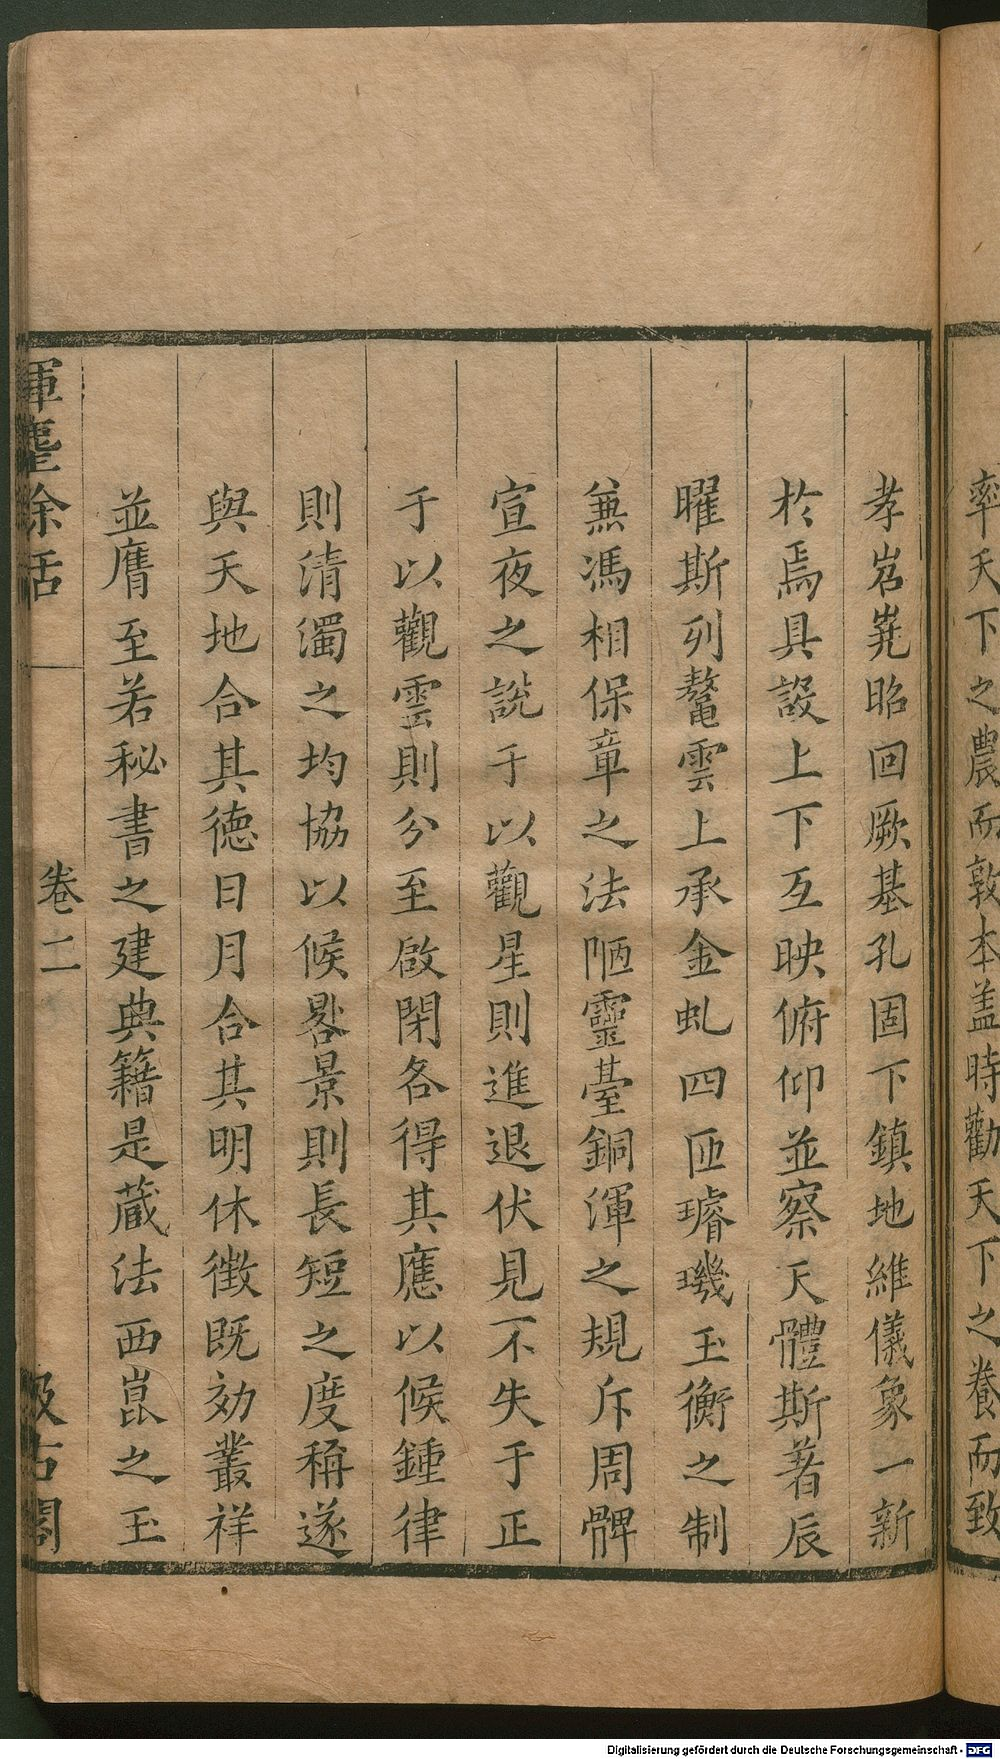 率天下之農而敦本蓋時勸天下之養而致
孝岧嶤昭回厥基孔固下鎮地維儀象一新
於焉具設上下互映俯仰並察天體斯著辰
曜斯列鼇雲上承金虬四匝璿璣玉衡之制
兼馮相保章之法陋靈臺銅渾之規斥周髀
宣夜之說于以觀星則進退伏見不失于正
于以觀雲則分至啟閉各得其應以候鍾律
則清濁之均協以候晷景則長短之度稱遂
與天地合其德日月合其明休徵既効叢祥
並膺至若秘書之建典籍是藏法西崑之玉
揮麈餘話
卷二
汲古閣
Digitalisierung gefördert durch die Deutsche Forschungsgemeinschaft - DFG